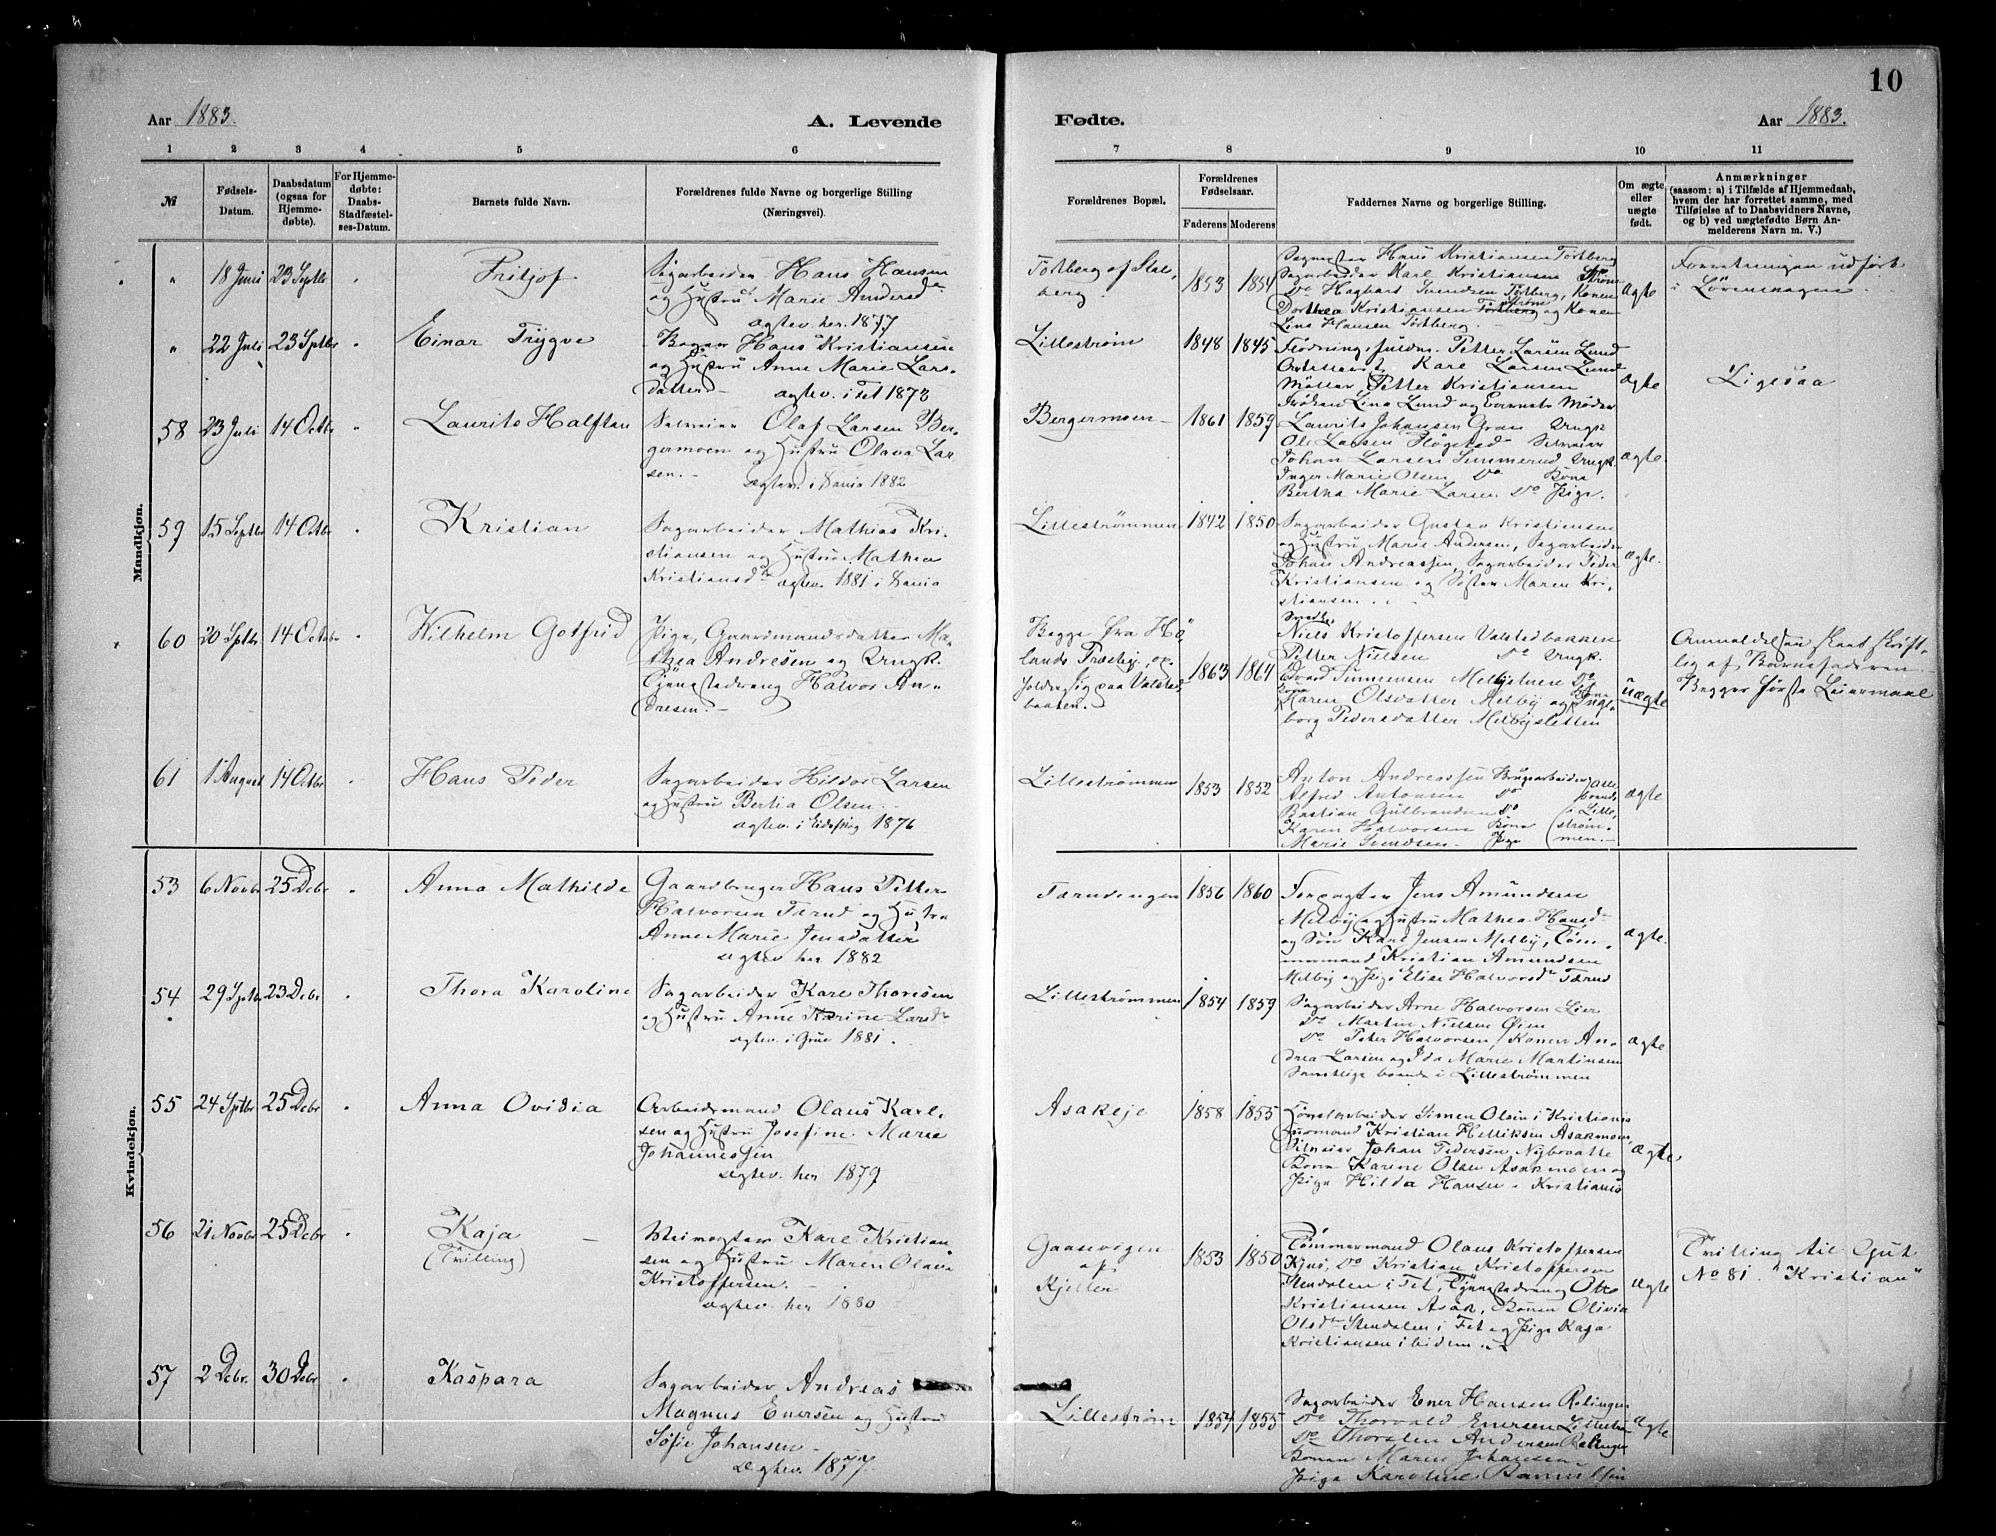 10
Aar 1883.
A. Levende
Fødte.
Aar 1883.
1 2 3 4 5 6
7 8 9 10 11
№
Fødsels-
Datum.
Daabsdatum
(ogsaa for
Hjemme-
døbte).
For Hjemme-
døbte:
Daabs-
Stadfæstel-
ses-Datum.
Barnets fulde Navn.
Forældrenes fulde Navne og borgerlige Stilling
(Næringsvei).
Forældrenes Bopæl.
Forældrenes
Fødselsaar.
Faderens Moderens
Faddernes Navne og borgerlige Stilling.
Om ægte
eller
uægte
født.
Anmærkninger
(saasom: a) i Tilfælde af Hjemmedaab,
hvem der har forrettet samme, med
Tilføielse af to Daabsvidners Navne,
og b) ved uægtefødte Børn An-
melderens Navn m. V.)
Mandkjøn.
" 18 Juni 23 Septbr Fritjof
Sagarbeider Hans Hansen
og Hustru Marie Andersd
ægtev. her. 1877
Tortberg af Stal-
berg.
1853 1854
Hans Kristiansen Tortberg
Sagarbeider Karl Kristiansen Strøm
Do Hagbart Svendsen Tortberg, Konen
Dorthea Kristiansen og Konen
Lina Hansen Tortberg.
ægte
Forretningen udført
i Lørenskogen.
" 22 Juli 23 Sptbr Einar Trygve
Bager Hans Kristiansen
og Hustru Anne Marie Lars-
datter
ægtev. i Fet 1873
Lillestrøm
1848 1845
Petter Larsen Lund
Karl Larsen Lund
Møller Petter Kristiansen
Frøken Lina Lund og Barnets Moder
ægte
Ligesaa
58 23 Juli 14 Octbr Laurits Halftan
Olaf Larsen Ber-
germoen og Hustru Olava Lar-
sen.
ægtev. i Sania 1882
Bergermoen
1861 1859
Laurits Johansen Gran Ungk
Ole Larsen Fløgstad
Johan Larsen Simmerud Ungk.
Inger Marie Olsen Do Kone
Bertha Marie Larsen Do Pige.
ægte
59 15 Septbr 14 Octbr Kristian
Sagarbeider Mathias Kri-
stiansen og Hustru Mathea
Kristiansd ægtev. 1881 i Sania
Lillestrømmen
1842 1850
Sagarbeider Gustav Kristiansen
og Hustru Marie Andersen, Sagarbeider
Johan Andreassen, Sagarbeider Peder
Kristiansen og Søster Maren Kri-
stiansen.
ægte.
60 20 Sptbr 14 Octbr Wilhelm Gotfrid
Pige, Gaardmandsdatter Ma-
thea Andresen og Ungk.
Tjenestedreng Halvor An-
dresen.
Begge fra Hø-
lands Præstegj. op-
holder sig paa Valstad-
bakken.
1863 1864
Smed
Niels Kristoffersen Valstadbakken
Petter Nielsen Do Ungk.
Edvard Simmensen Do
Karen Olsdatter Melby og Inge-
borg Pedersdatter Melbysletten
uægte
Anmeldelsen skeet skrift-
lig af Barnefaderen
Begges første Leiermaal
61 1 August 14 Octbr Hans Peder
Sagarbeider Hildor Larsen
og Hustru Bertia Olsen.
ægtev. i Eidskog 1876
Lillestrømmen
1853 1852
Anton Andreassen Brugsarbeider
Alfred Antonsen Do
Bastian Gulbrandsen Do
Karen Halvorsen Kone
Marie Svendsen Pige
alle
boende
i Lille-
strøm-
men.
ægte
Kvindekjøn.
53 6 Novbr 25 Debr Anna Mathilde
Gaardbruger Hans Petter
Halvorsen Tærud og Hustru
Anne Marie Jensdatter
ægtev her 1882
Tærudengen
1856 1860
Forpagter Jens Amundsen
Melby og Hustru Mathea Hansd
og Søn Karl Jensen Melby, Tøm-
mermand Kristian Amundsen
Melby og Pige Elise Halvorsd Tærud
ægte.
54 29 Sptbr 23 Debr Thora Karoline
Sagarbeider Karl Thoresen
og Hustru Anne Karine Larsd
ægtev. i Grue 1881.
Lillestrømmen
1854 1859
Sagarbeider Arne Halvorsen Lier
Do Martin Nielsen Øien
Do Peter Halvorsen, Konen An-
drea Larsen og Ida Marie Martinsen
Samtlige boende i Lillestrømmen
ægte
55 24 Sptbr 25 Debr Anna Ovidia
Arbeidsmand Olaus Karl-
sen og Hustru Josefine Marie
Johannessen
ægtev. her 1879
Asakeje
1858 1855
Simen Olsen i Kristiania
Husmand Kristian Helliksen Asakmoen,
Johan Pedersen Nybovatte
Kone Karene Olsen Asakmoen og
Pige Hilda Hansen Kristiania
ægte
56 21 Novbr 25 Debr Kaja
(Tvilling)
Veivogter Karl Kristian
sen og Hustru Maren Olava
Kristoffersen.
ægtev. her 1880
Gaasevigen
af
Kjeller
1853 1850
Tømmermand Olaus Kristoffersen
Kjus, Do Kristian Kristoffersen
Stendalen i Fet, Tjenestedreng Otto
Kristiansen Asak, Konen Olivia
Olsd Stendalen i Fet og Pige Kaja
Kristiansen ibidem.
ægte
Tvilling til Gut
No 81. "Kristian"
57 2 Debr. 30 Debr Kaspara
Sagarbeider Andreas
Magnus Enersen og Hustru
Sofie Johansen
Ægtev. 1877.
Lillestrøm
1854 1855
Sagarbeider Ener Hansen Rælingen
Do Thorvald Enersen Lillestrøm
Do Thorsten Andersen Rælingen
Konen Maren Johansen
Pige Karoline
ægte